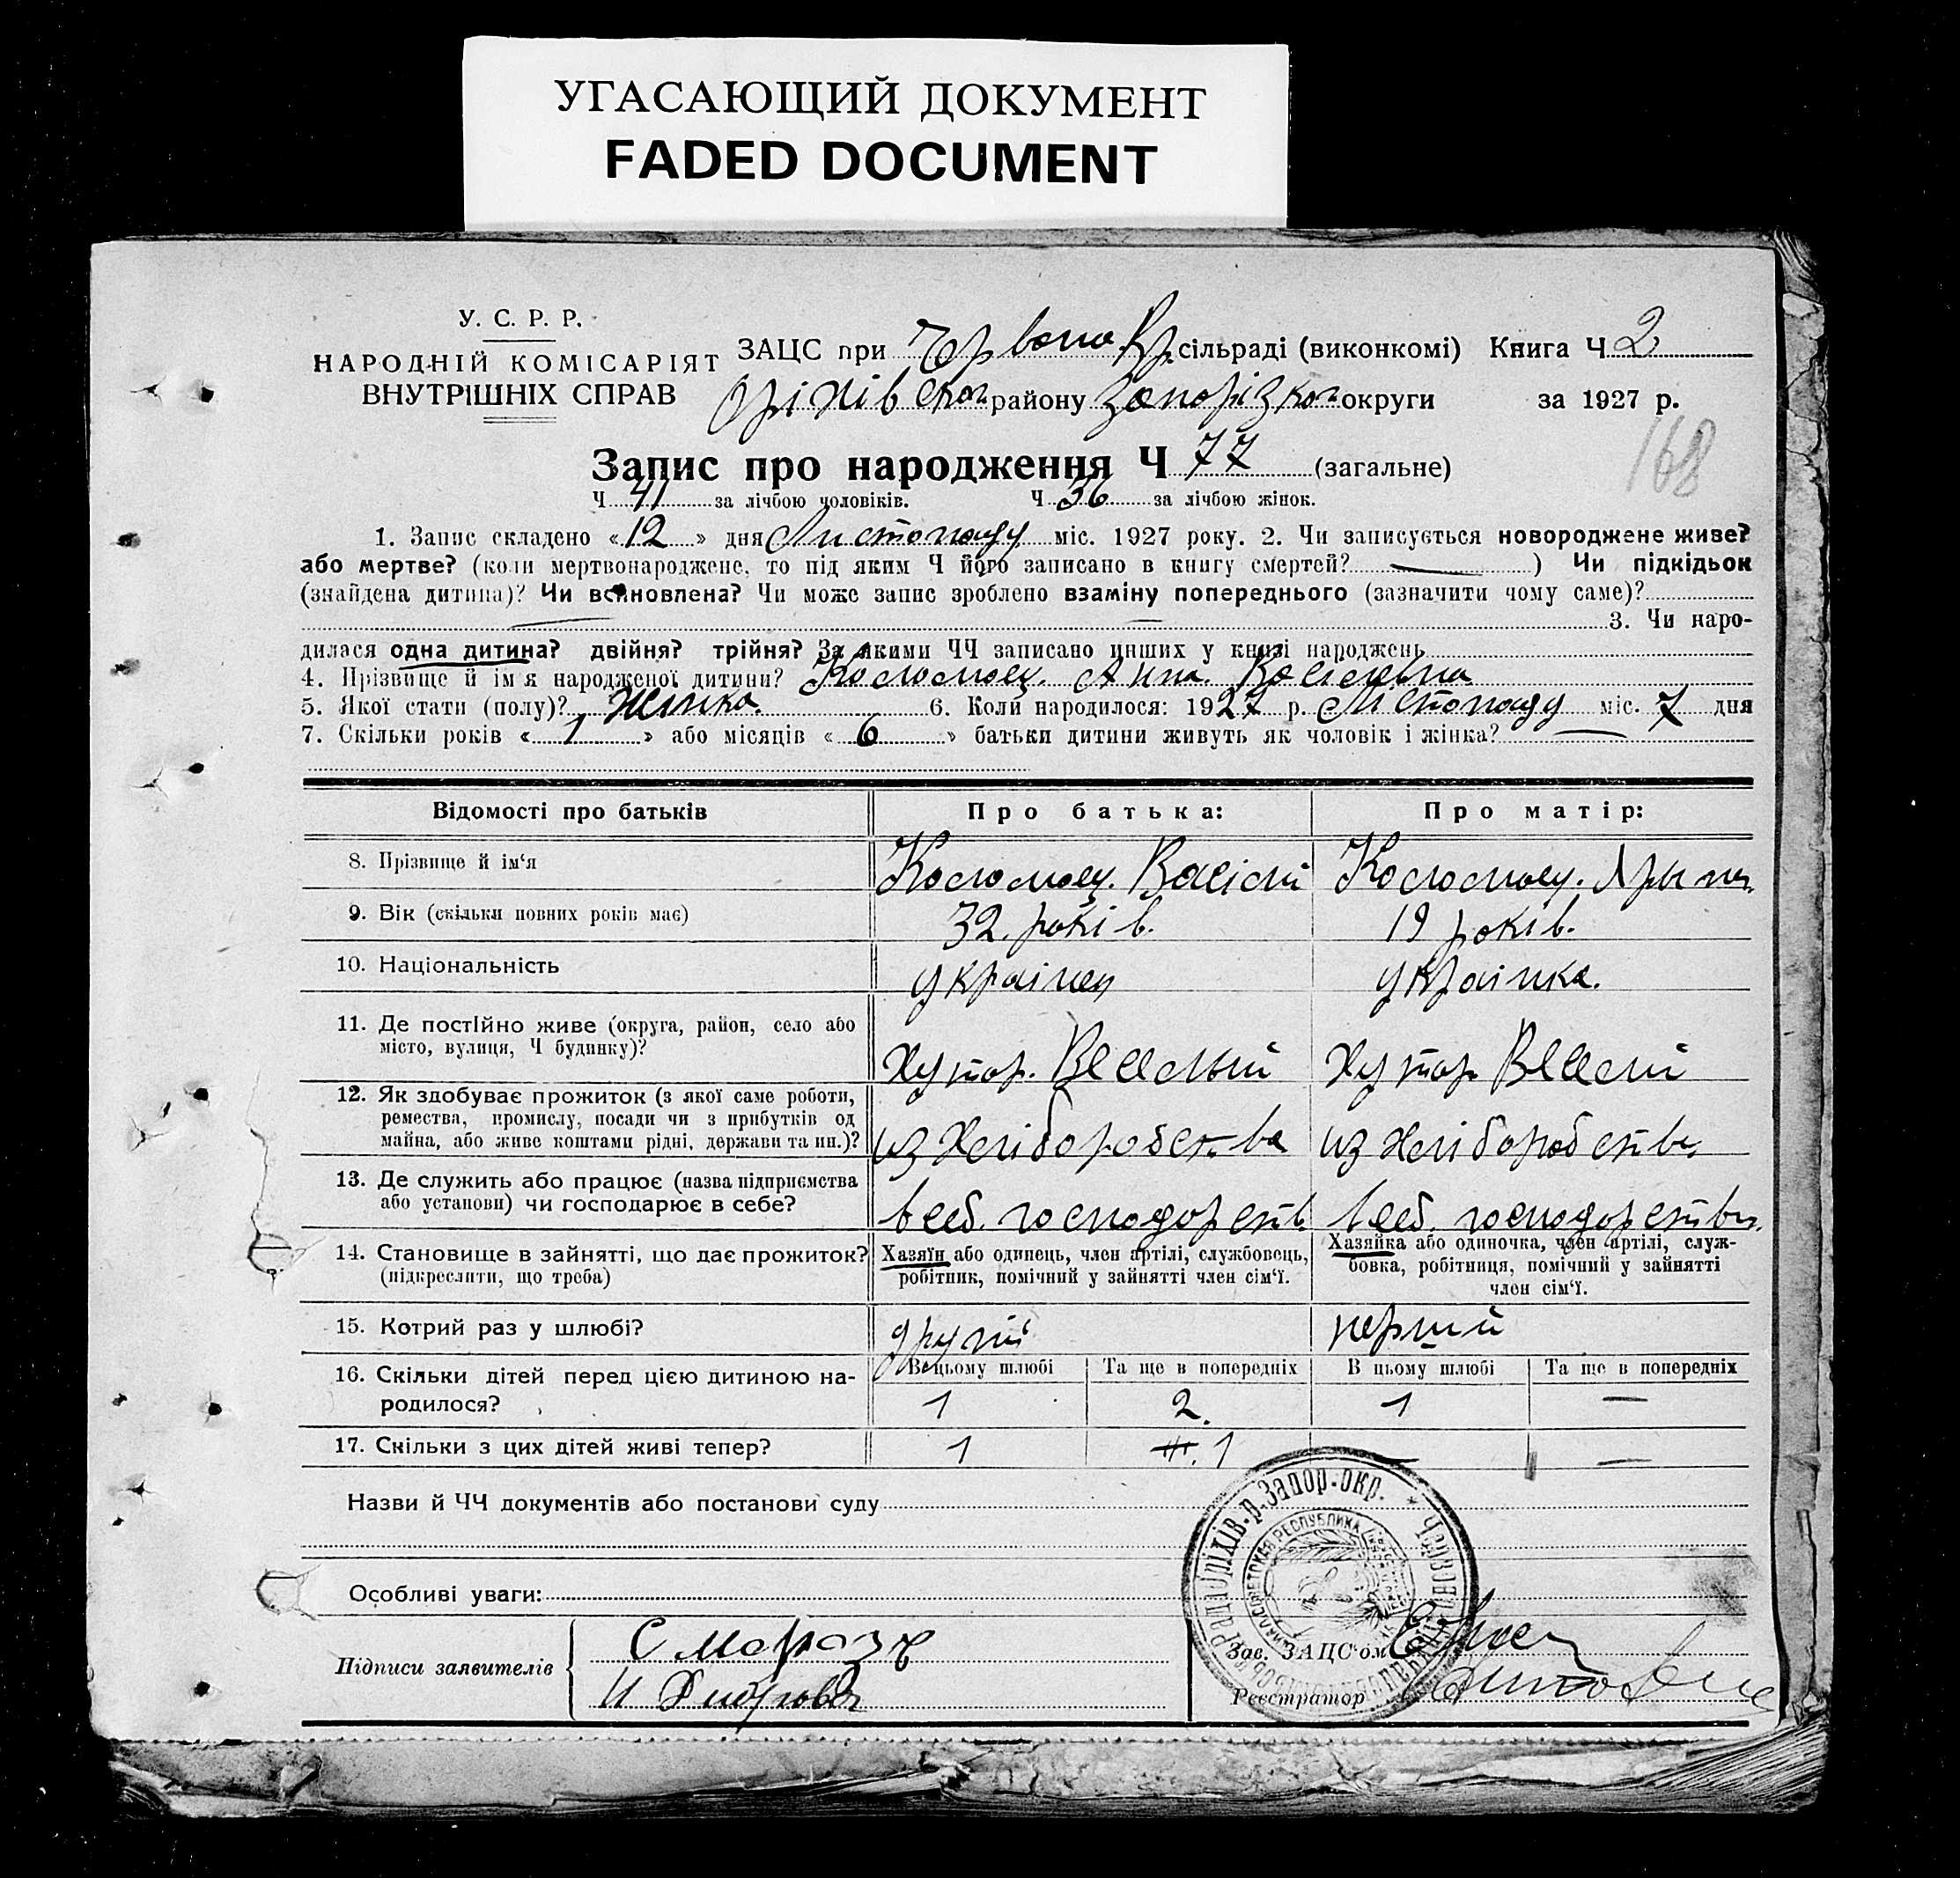 УГАСАЮЩИЙ ДОКУМЕНТ
FADED DOCUMENT
У. С. Р. Р.
НАРОДНІЙ КОМІСАРІЯТ
ВНУТРІШНІХ СПРАВ
ЗАЦС при Червоно Кр. сільраді (виконкомі) Книга Ч 2
Оріхівской району Запорізкой округи за 1927 р.
168
Запис про народження Ч 77 (загальне)
Ч 41 за лічбою чоловіків. Ч 36 за лічбою жінок.
1. Запис складено «12» дня Листопаду міс. 1927 року. 2. Чи записується новороджене живе?
або мертве? (коли мертвонароджене, то під яким Ч його записано в книгу смертей? — ) Чи підкідьок
(знайдена дитина)? Чи всиновлена? Чи може запис зроблено взаміну попереднього (зазначити чому саме)?
— — 3. Чи наро-
дилася одна дитина? двійня? трійня? За якими ЧЧ записано инших у книзі народжень
4. Прізвище й ім'я народженої дитини? Коломоец. Анна. Васілевна
5. Якої стати (полу)? Жінка. 6. Коли народилося: 1927 р. Лістопаду міс. 7 дня
7. Скільки років «1» або місяців «6» батьки дитини живуть як чоловік і жінка? —
Відомості про батьків Про батька: Про матір:
8. Прізвище й ім'я Коломоец. Васілій Коломоец. Ярына
9. Вік (скільки повних років має) 32. років. 19 років.
10. Національність українец українка.
11. Де постійно живе (округа, район, село або
місто, вулиця, Ч будинку)? Хутор. Веселый Хутор Веселий
12. Як здобуває прожиток (з якої саме роботи,
ремества, промислу, посади чи з прибутків од
майна, або живе коштами рідні, держави та ин.)? из хліборобства из хліборобства
13. Де служить або працює (назва підприємства
або установи) чи господарює в себе? в себ. господорств. в себ. господорстви.
14. Становище в зайнятті, що дає прожиток? Хазяїн або одинець, член артілі, службовець, Хазяйка або одиночка, член артілі, служ-
(підкреслити, що треба) робітник, помічний у зайнятті член сім'ї. бовка, робітниця, помічний у зайнятті
член сім'ї.
15. Котрий раз у шлюбі? другій перший
16. Скільки дітей перед цією дитиною на- В цьому шлюбі Та ще в попередніх В цьому шлюбі Та ще в попередніх
родилося? 1 2. 1 —
17. Скільки з цих дітей живі тепер? 1 1 — —
Назви й ЧЧ документів або постанови суду
Запор. окр.
Особливі уваги:
Підписи заявителів С Морозъ Зав. ЗАЦС'ом
И Реєстратор